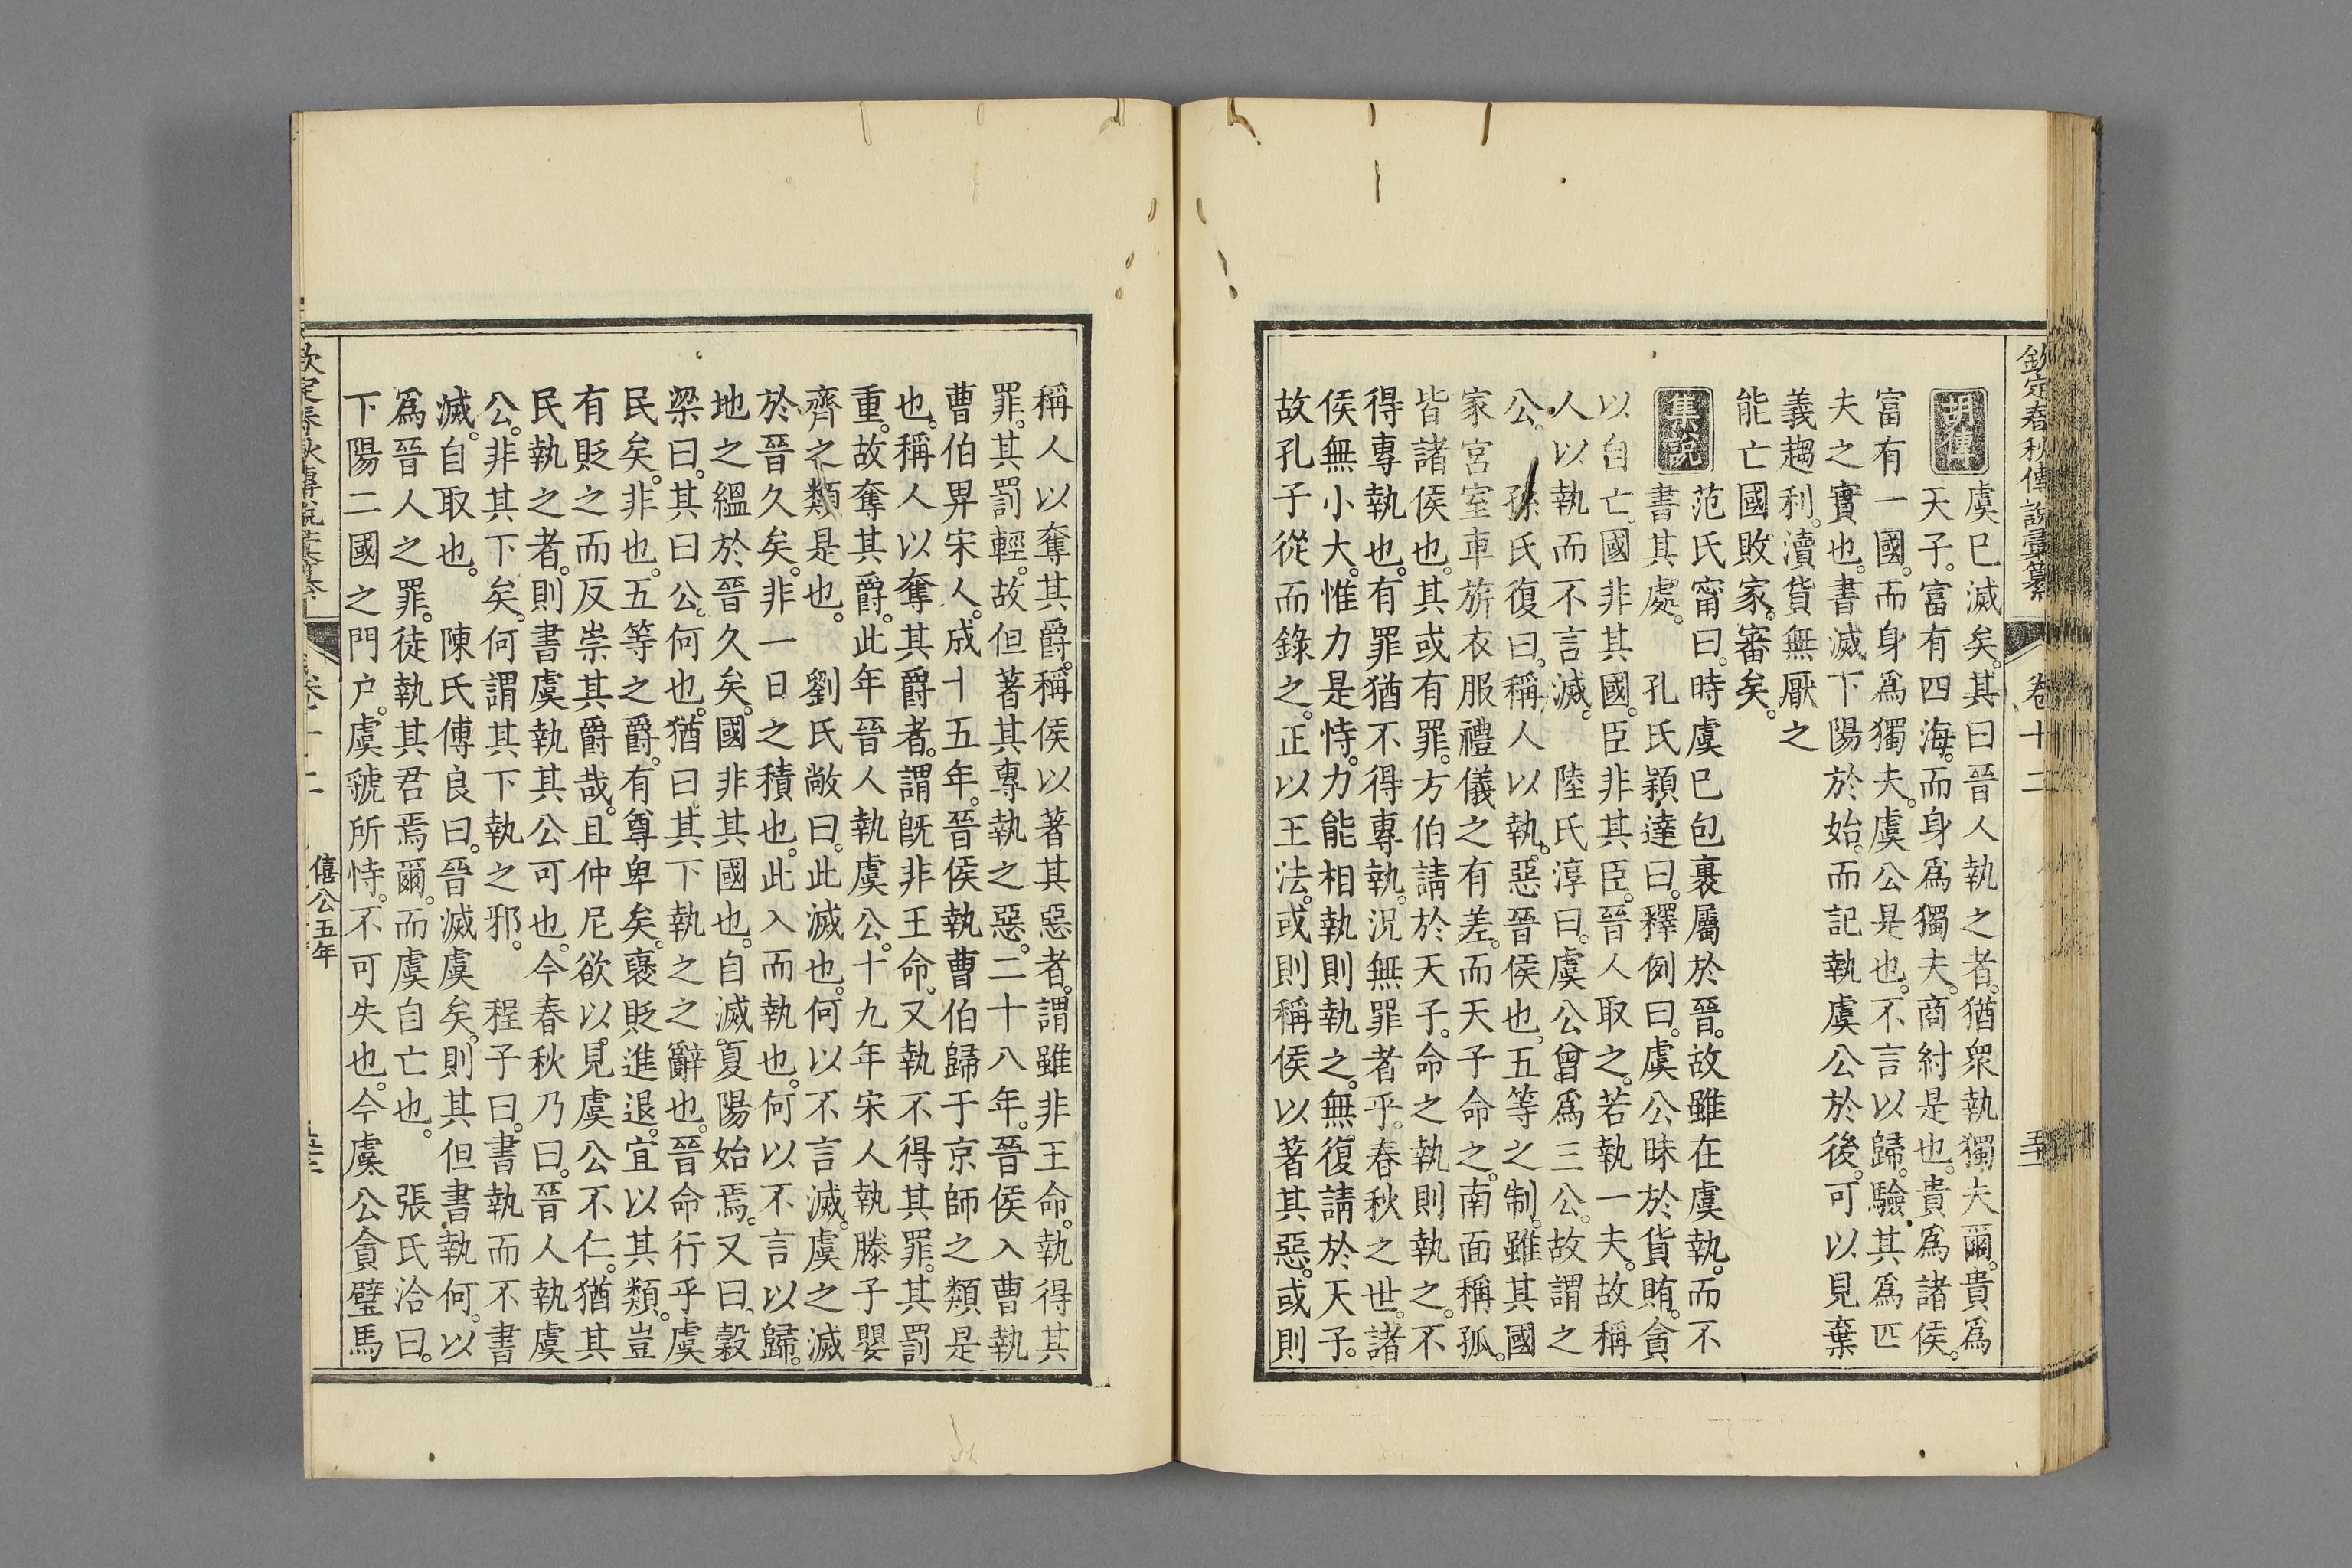 欽定春秋傳說彙纂 卷十二
胡傳
虞已滅矣。其曰晉人執之者。猶衆執獨夫爾。貴爲
天子。富有四海。而身爲獨夫。商紂是也。貴爲諸侯。
富有一國。而身爲獨夫。虞公是也。不言以歸。驗其爲匹
夫之實也。書滅下陽於始。而記執虞公於後。可以見棄
義趨利。瀆貨無厭之
能亡國敗家。審矣。
集說
范氏甯曰。時虞已包裹屬於晉。故雖在虞執。而不
書其處。 孔氏穎達曰。釋例曰。虞公昧於貨賄。貪
以自亡。國非其國。臣非其臣。晉人取之。若執一夫。故稱
人以執而不言滅。 陸氏淳曰。虞公曾爲三公。故謂之
公。 孫氏復曰。稱人以執。惡晉侯也。五等之制。雖其國
家宮室車旂衣服禮儀之有差。而天子命之。南面稱孤。
皆諸侯也。其或有罪。方伯請於天子。命之執則執之。不
得專執也。有罪猶不得專執。況無罪者乎。春秋之世。諸
侯無小大。惟力是恃。力能相執則執之。無復請於天子。
故孔子從而錄之。正以王法。或則稱侯以著其惡。或則
稱人以奪其爵。稱侯以著其惡者。謂雖非王命。執得其
罪。其罰輕。故但著其專執之惡。二十八年。晉侯入曹執
曹伯畀宋人。成十五年。晉侯執曹伯歸于京師之類是
也。稱人以奪其爵者。謂旣非王命。又執不得其罪。其罰
重。故奪其爵。此年晉人執虞公。十九年宋人執滕子嬰
齊之類是也。 劉氏敞曰。此滅也。何以不言滅。虞之滅
於晉久矣。非一日之積也。此入而執也。何以不言以歸。
地之縕於晉久矣。國非其國也。自滅夏陽始焉。又曰。穀
梁曰。其曰公。何也。猶曰其下執之之辭也。晉命行乎虞
民矣。非也。五等之爵。有尊卑矣。襃貶進退。宜以其類。豈
有貶之而反崇其爵哉。且仲尼欲以見虞公不仁。猶其
民執之者。則書虞執其公可也。今春秋乃曰。晉人執虞
公。非其下矣。何謂其下執之邪。 程子曰。書執而不書
滅。自取也。 陳氏傅良曰。晉滅虞矣。則其但書執何。以
爲晉人之罪。徒執其君焉爾。而虞自亡也。 張氏洽曰。
下陽二國之門戶。虞虢所恃。不可失也。今虞公貪璧馬
欽定春秋傳說彙纂 卷十二 僖公五年